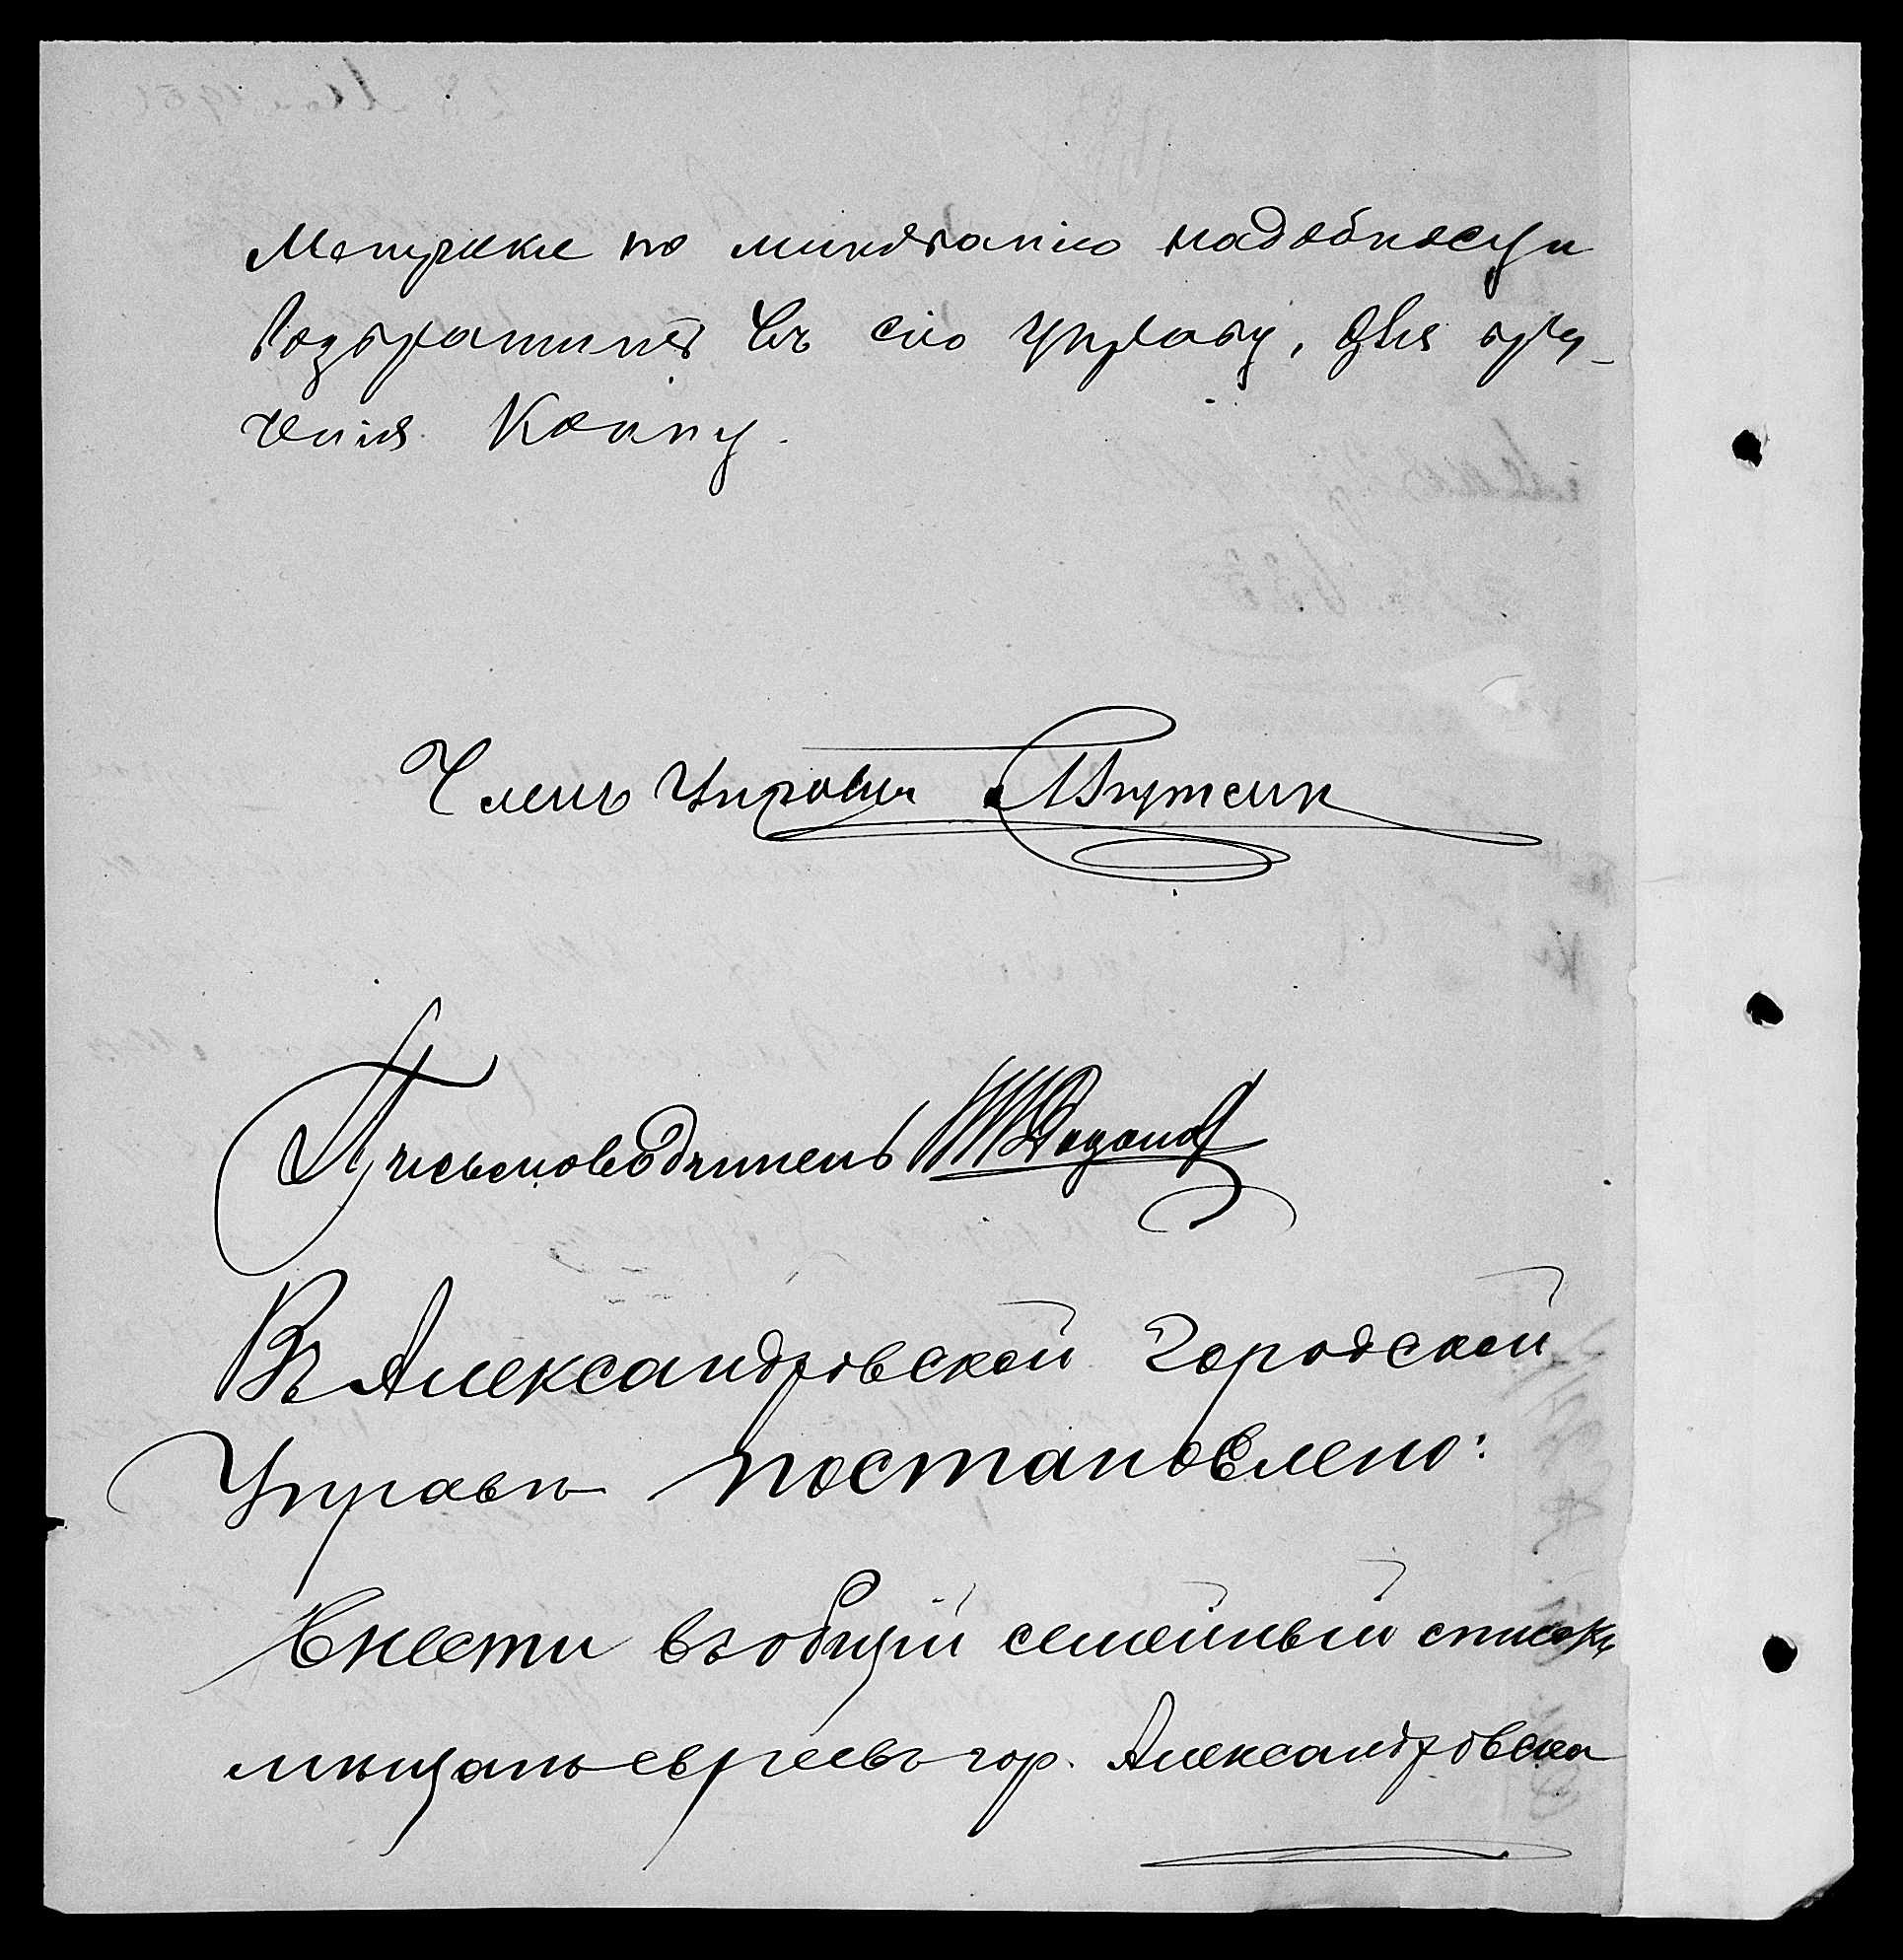 Метрике по минованію надобности
возвратить въ сію управу, для вру-
ченія Копну.
Членъ Управы
Письмоводитель
Въ Александровской Городской
Управѣ постановлено:
Внести въ общій семейный списокъ
мѣщанъ евреевъ гор. Александровска